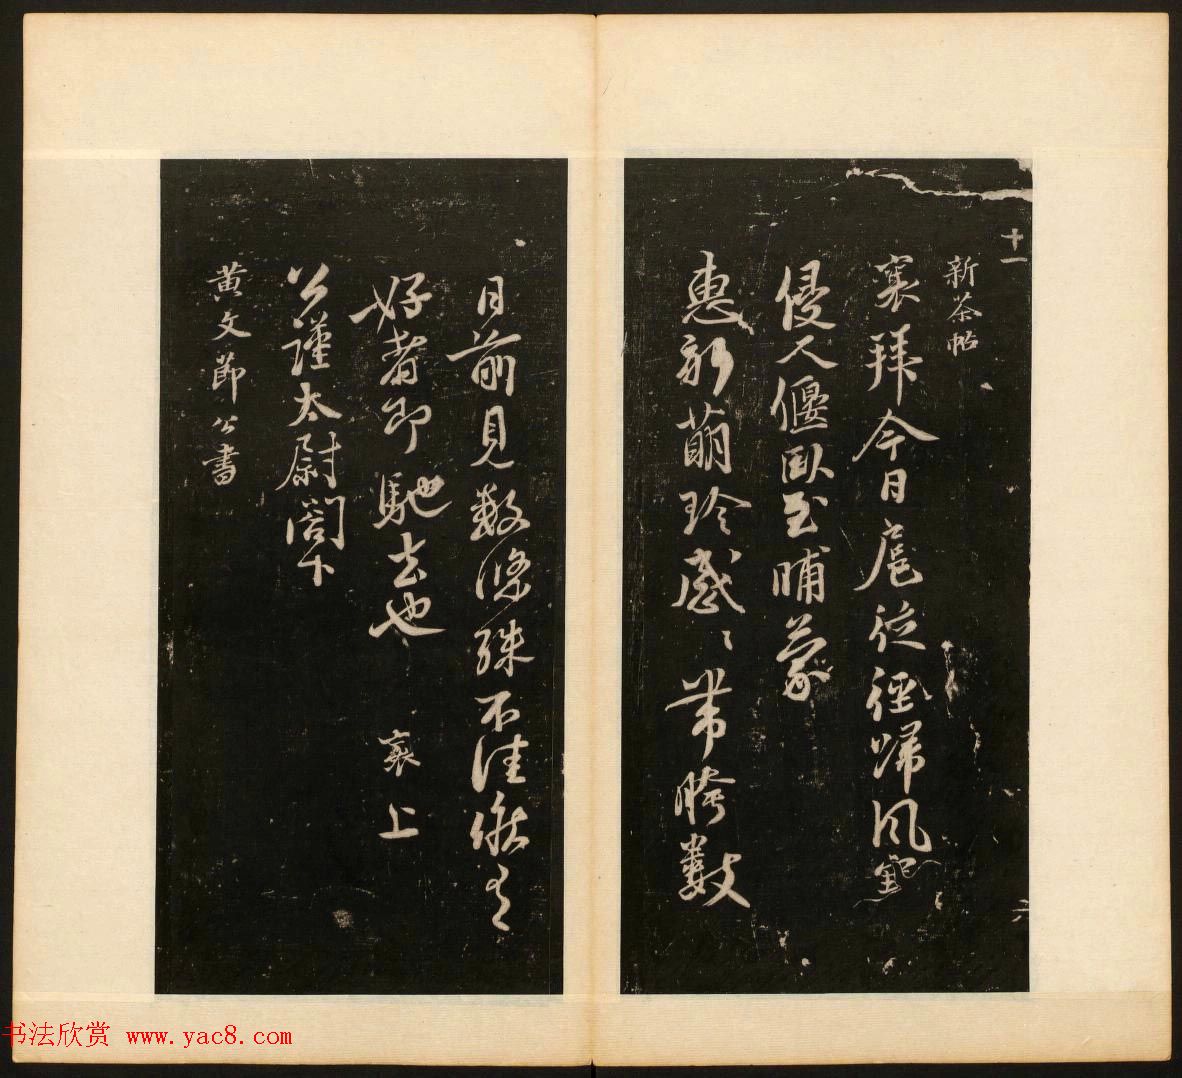 十一
新茶帖
襄拜今日扈從徑歸風
侵人偃臥至晡蒙
惠新萠珍感〻帶胯數
日前見數條殊不佳候有
好者即馳去也 襄上
公謹太尉閤下
黄文節公書
六
书法欣赏 www.yac8.com